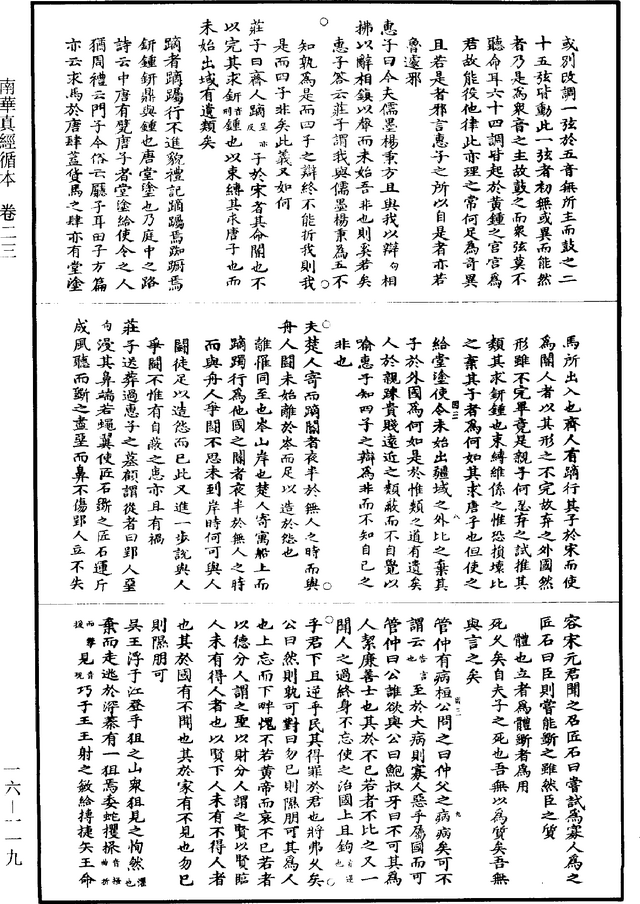 南華真經循本　卷二三
一六—一一九
或別改調一弦於五音無所主而鼓之二
十五弦皆動此一弦者初無或異而能然
者乃是為眾音之主故鼓之而眾弦莫不
聽命耳六十四調皆起於黃鍾之宮宮為
君故能役他律此亦理之常何足為奇異
且若是者邪言惠子之所以自是者亦若
魯遽邪
惠子曰今夫儒墨楊秉方且與我以辯句相
拂以辭相鎮以聲而未始吾非也則奚若矣
惠子答云莊子謂我與儒墨楊秉為五不
知孰為是而四子之辯終不能折我則我
是而四子非矣此義又如何
莊子曰齊人蹢呈亦反子於宋者其命閽也不
以完其求鈃音刑鍾也以束縛其求唐子也而
未始出域有遺類矣
蹢者蹢躅行不進貌禮記蹢躅焉踟躕焉
鈃鍾鈃鼎與鍾也唐堂塗也乃庭中之路
詩云中唐有甓唐子者堂塗給使令之人
猶周禮云門子今俗云廳子耳田子方篇
亦云求馬於唐肆蓋貨馬之肆亦有堂塗
馬所出入也齊人有蹢行其子於宋而使
為閽人者以其形之不完故弃之外國然
形雖不完畢竟是親子何忍弃之試推其
類其求鈃鍾也束縛維係之惟恐損壞比
之棄其子者為何如其求唐子也但使之
給堂塗使令未始出疆域之外比之棄其
子於外國為何如是於惟類之道有遺矣
人於親踈貴賤遠近之類蔽而不自覺以
喻惠子知四子之辯為非而不知自己之
非也
夫楚人寄而蹢閽者夜半於無人之時而與
舟人鬬未始離於岑而足以造於怨也
離罹同至也岑山岸也楚人寄寓船上而
蹢躅行為他國之閽者夜半於無人之時
而與舟人爭鬬不思未到岸時何可與人
鬬徒足以造怨而已此又進一步說與人
爭鬬不惟有自蔽之患亦且有禍
莊子送葬過惠子之墓顧謂從者曰郢人堊
句漫其鼻端若蠅翼使匠石斲之匠石運斤
成風聽而斲之盡堊而鼻不傷郢人立不失
容宋元君聞之召匠石曰嘗試為寡人為之
匠石曰臣則嘗能斲之雖然臣之質
體也立者為體斲者為用
死久矣自夫子之死也吾無以為質矣吾無
與言之矣
管仲有病桓公問之曰仲父之病病矣可不
謂云句至於大病則寡人惡乎屬國而可
管仲曰公誰欲與公曰鮑叔牙曰不可其為
人絜廉善士也其於不已若者不比之又一
聞人之過終身不忘使之治國上且鉤也逆
乎君下且逆乎民其得罪於君也將弗久矣
公曰然則孰可對曰勿已則隰朋可其為人
也上忘而下畔愧不若黃帝而哀不已若者
以德分人謂之聖以財分人謂之賢以賢臨
人未有得人者也以賢下人未有不得人者
也其於國有不聞也其於家有不見也勿已
則隰朋可
吳王浮于江登乎狙之山眾狙見之恂然
棄而走逃於深蓁有一狙焉委蛇攫
見巧乎王王射之敏給搏捷矢王命